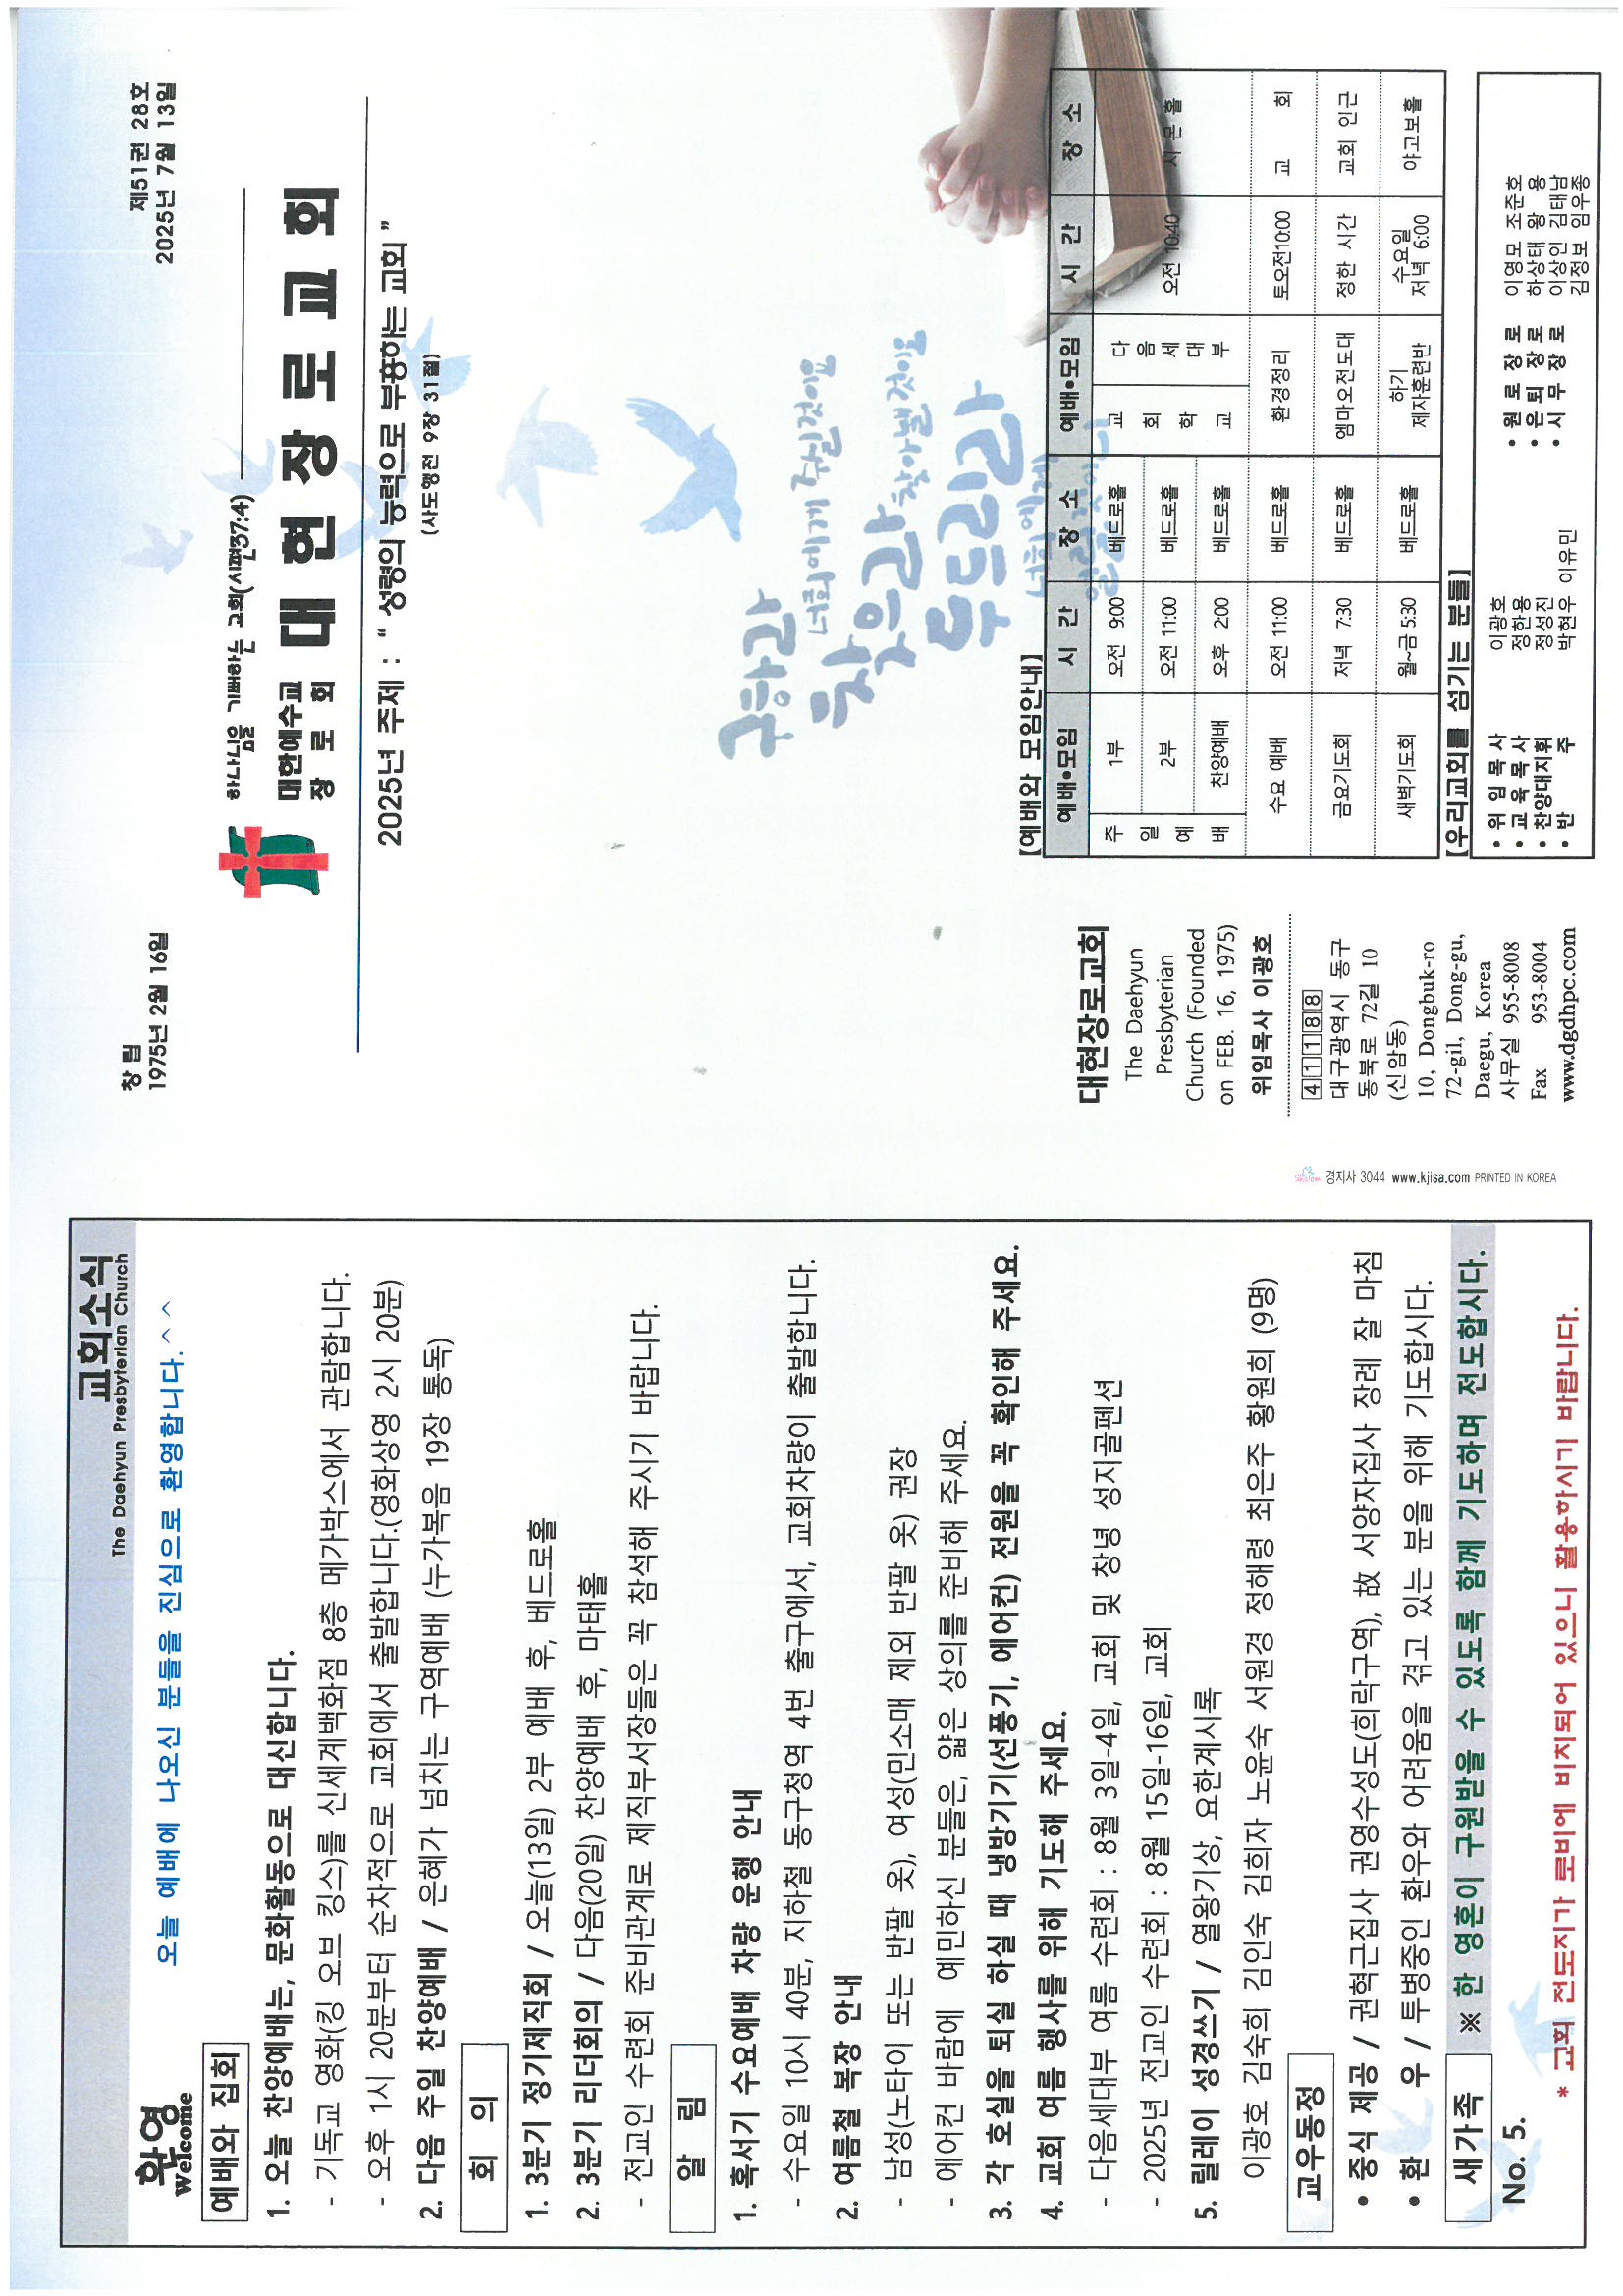 교회소식
The Daehyun Presbyterian Church
환영
Welcome
오늘 예배에 나오신 분들을 진심으로 환영합니다.^^
예배와 집회
1. 오늘 찬양예배는, 문화활동으로 대신합니다.
- 기독교 영화(킹 오브 킹스)를 신세계백화점 8층 메가박스에서 관람합니다.
- 오후 1시 20분부터 순차적으로 교회에서 출발합니다.(영화상영 2시 20분)
2. 다음 주일 찬양예배 / 은혜가 넘치는 구역예배 (누가복음 19장 통독)
회 의
1. 3분기 정기제직회 / 오늘(13일) 2부 예배 후, 베드로홀
2. 3분기 리더회의 / 다음(20일) 찬양예배 후, 마태홀
- 전교인 수련회 준비관계로 제직부서장들은 꼭 참석해 주시기 바랍니다.
알 림
1. 혹서기 수요예배 차량 운행 안내
- 수요일 10시 40분, 지하철 동구청역 4번 출구에서, 교회차량이 출발합니다.
2. 여름철 복장 안내
- 남성(노타이 또는 반팔 옷), 여성(민소매 제외 반팔 옷) 권장
- 에어컨 바람에 예민하신 분들은, 얇은 상의를 준비해 주세요.
3. 각 호실을 퇴실 하실 때 냉방기기(선풍기, 에어컨) 전원을 꼭 확인해 주세요.
4. 교회 여름 행사를 위해 기도해 주세요.
- 다음세대부 여름 수련회 : 8월 3일-4일, 교회 및 창녕 성지골펜션
- 2025년 전교인 수련회 : 8월 15일-16일, 교회
5. 릴레이 성경쓰기 / 열왕기상, 요한계시록
이광호 김숙희 김인숙 김희자 노윤숙 서원경 정해령 최은주 황원희 (9명)
교우동정
• 중식 제공 / 권혁근집사 권영수성도(희락구역), 故 서양자집사 장례 잘 마침
• 환 우 / 투병중인 환우와 어려움을 겪고 있는 분을 위해 기도합시다.
새가족 ※ 한 영혼이 구원받을 수 있도록 함께 기도하며 전도합시다.
No. 5.
* 교회 전도지가 로비에 비치되어 있으니 활용하시기 바랍니다.
창 립
1975년 2월 16일
제51권 28호
2025년 7월 13일
하나님을 기뻐하는 교회(시편37:4)
대한예수교
장 로 회
대 현 장 로 교 회
2025년 주제 : “ 성령의 능력으로 부흥하는 교회 ”
(사도행전 9장 31절)
구하라
너희에게 주실것이요
찾으라
찾아낼것이요
두드리라
너희에게
열릴것이니
대현장로교회
The Daehyun
Presbyterian
Church (Founded
on FEB. 16, 1975)
위임목사 이광호
41188
대구광역시 동구
동북로 72길 10
(신암동)
10, Dongbuk-ro
72-gil, Dong-gu,
Daegu, Korea
사무실 955-8008
Fax 953-8004
www.dgdhpc.com
[예배와 모임안내]
예배•모임 시 간 장 소 예배•모임 시 간 장 소
주일예배 1부 오전 9:00 베드로홀
2부 오전 11:00 베드로홀
찬양예배 오후 2:00 베드로홀
교회학교 다음세대부 오전 10:40 시몬홀
수요 예배 오전 11:00 베드로홀 환경정리 토오전10:00 교 회
금요기도회 저녁 7:30 베드로홀 엠마오전도대 정한 시간 교회 인근
새벽기도회 월~금 5:30 베드로홀 하기 제자훈련반 수요일 저녁 6:00 야고보홀
[우리교회를 섬기는 분들]
• 위 임 목 사 이광호
• 교 육 목 사 정한용
• 찬양대지휘 정성진
• 반 주 박현우 이유민
• 원 로 장 로 이영모 조준호
• 은 퇴 장 로 하상태 왕 용
• 시 무 장 로 이상인 김태남
김정보 임우종
경지사 3044 www.kjisa.com PRINTED IN KOREA